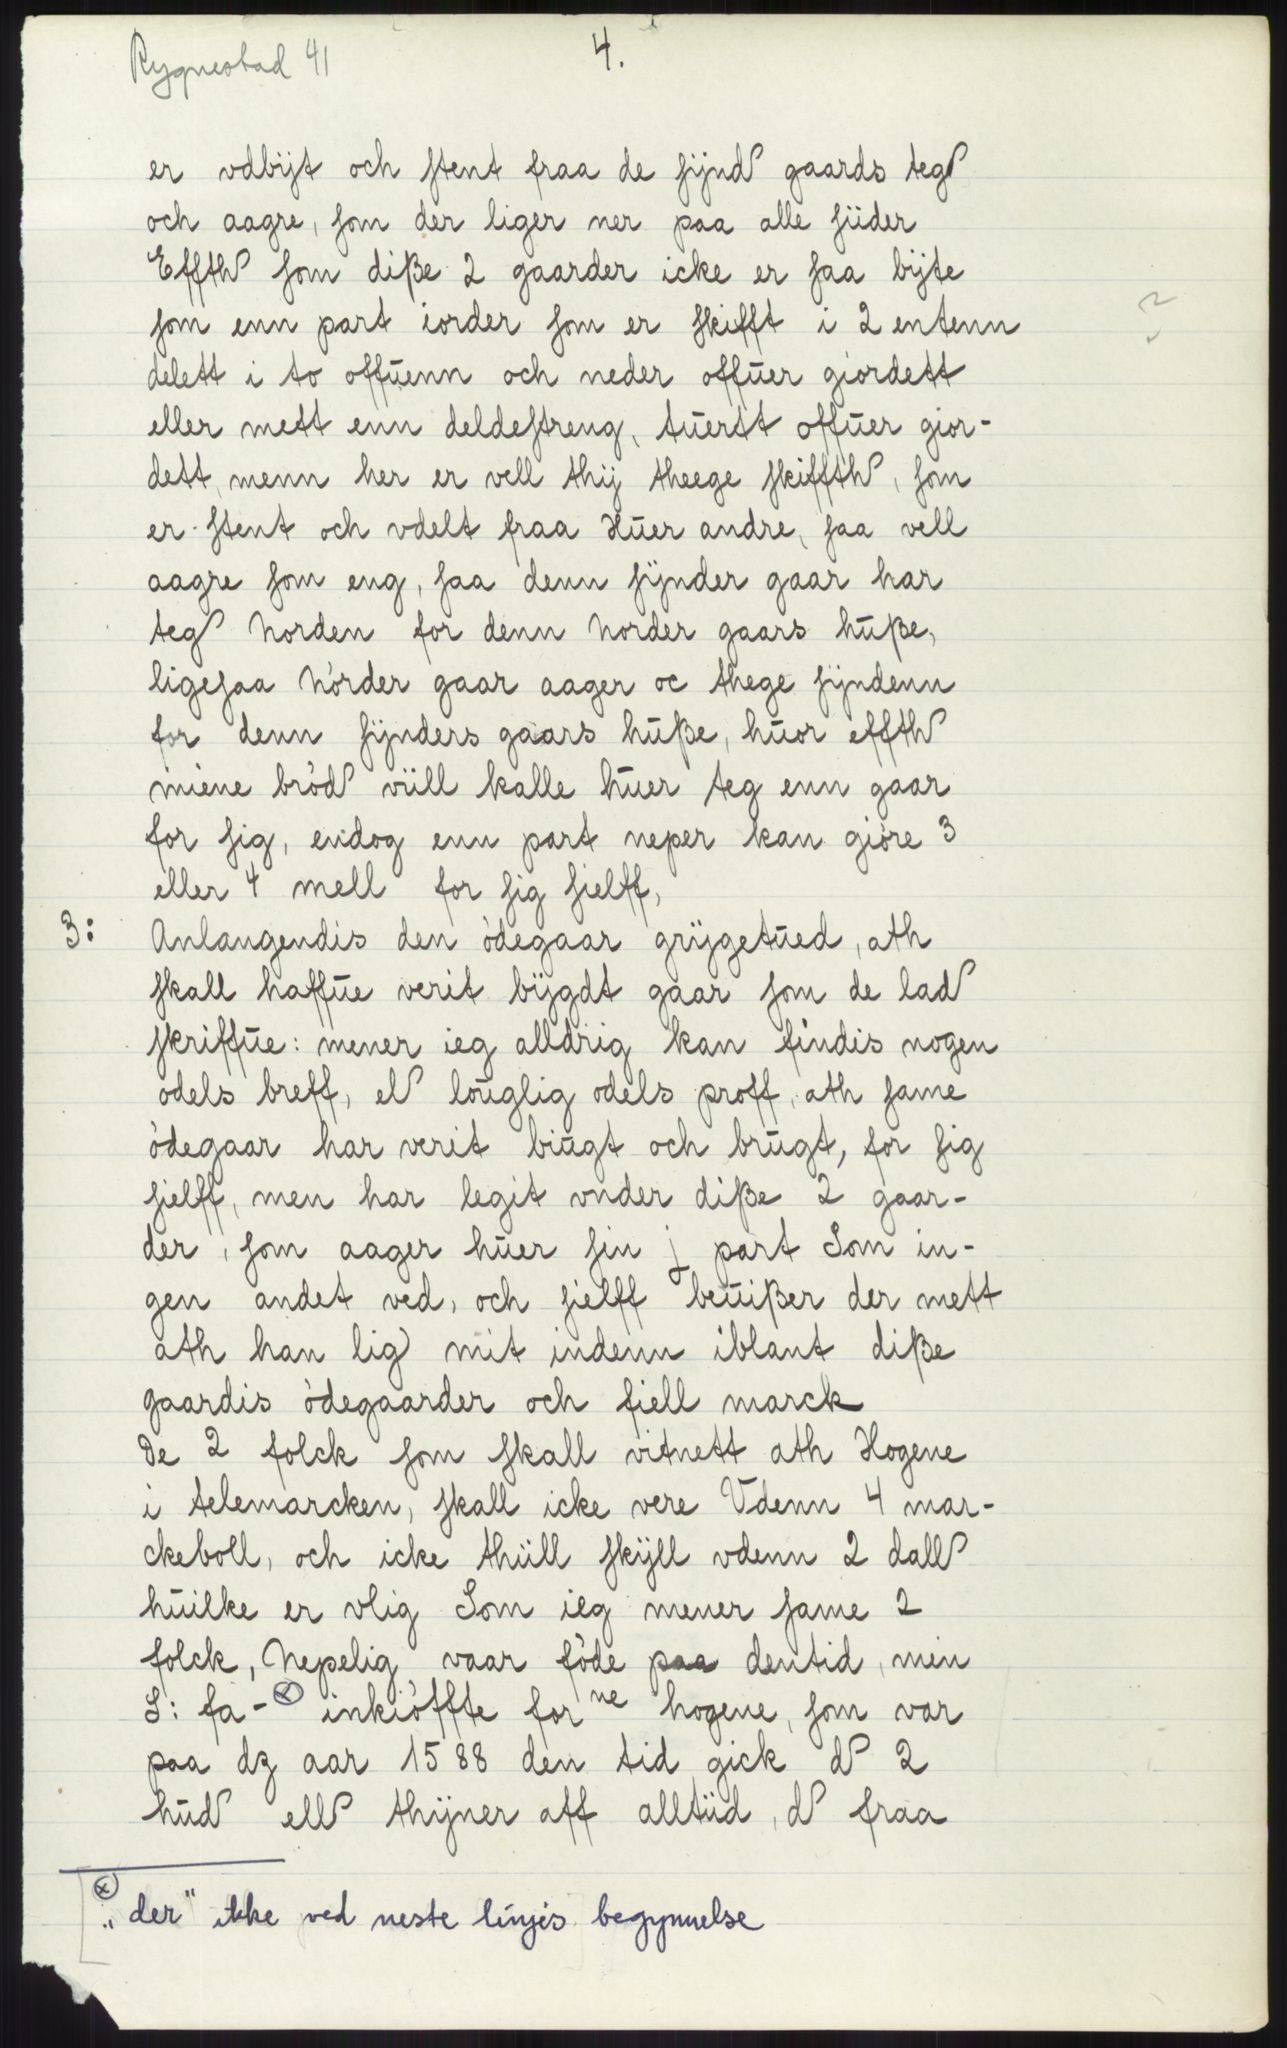 Rygnestad 41
4.
er vdbijt och ſtent fraa de ſijnd gaards teg
och aagre, ſom der liger ner paa alle ſüder
Effth ſom diße 2 gaarder icke er ſaa bijte
ſom enn part iorder ſom er ſkifft i 2 entenn
delett i to offuenn och neder offuer giordett
eller mett enn deldeſtreng, tuertt offuer gior-
dett, menn her er vell thij theege ſkiffth, ſom
er ſtent och vdelt fraa Huer andre, ſaa vell
aagre ſom eng, ſaa denn ſijnder gaar har
teg Norden for denn Norder gaars huße,
ligeſaa Nörder gaar aager oc thege ſijndenn
for denn ſijnders gaars huße, huor effth
miene bröd vüll kalle huer teg enn gaar
for ſig, endog enn part neper kan giöre 3
eller 4 mell for ſig ſielff,
3: Anlangendis den ödegaar grijgetued, ath
ſkall haffue verit bijgdt gaar ſom de lad
ſkriffue: mener ieg alldrig kan findis nogen
odels breff, el louglig odels proff, ath ſame
ödegaar har verit biugt och brugt, for ſig
ſielff, men har legit vnder diße 2 gaar-
der, ſom aager huer ſin j part Som in-
gen andet ved, och ſielff beuißer der mett
ath han lig mit indenn iblant diße
gaardis ödegaarder och fiell marck
De 2 folck ſom ſkall vitnett ath Hogene
i telemarcken, ſkall icke vere Vdenn 4 mar-
ckeboll, och icke thüll ſkijll vdenn 2 dall
huilke er vlig Som ieg mener ſame 2
folck, Nepelig vaar föde paa dentid, min
S: fa-(x) inkiöffte for ne hogene, ſom var
paa dz aar 1588 den tid gick d 2
hud ell thijner aff alltüd, d fraa
(x) „der" ikke ved neste linjes begynnelse